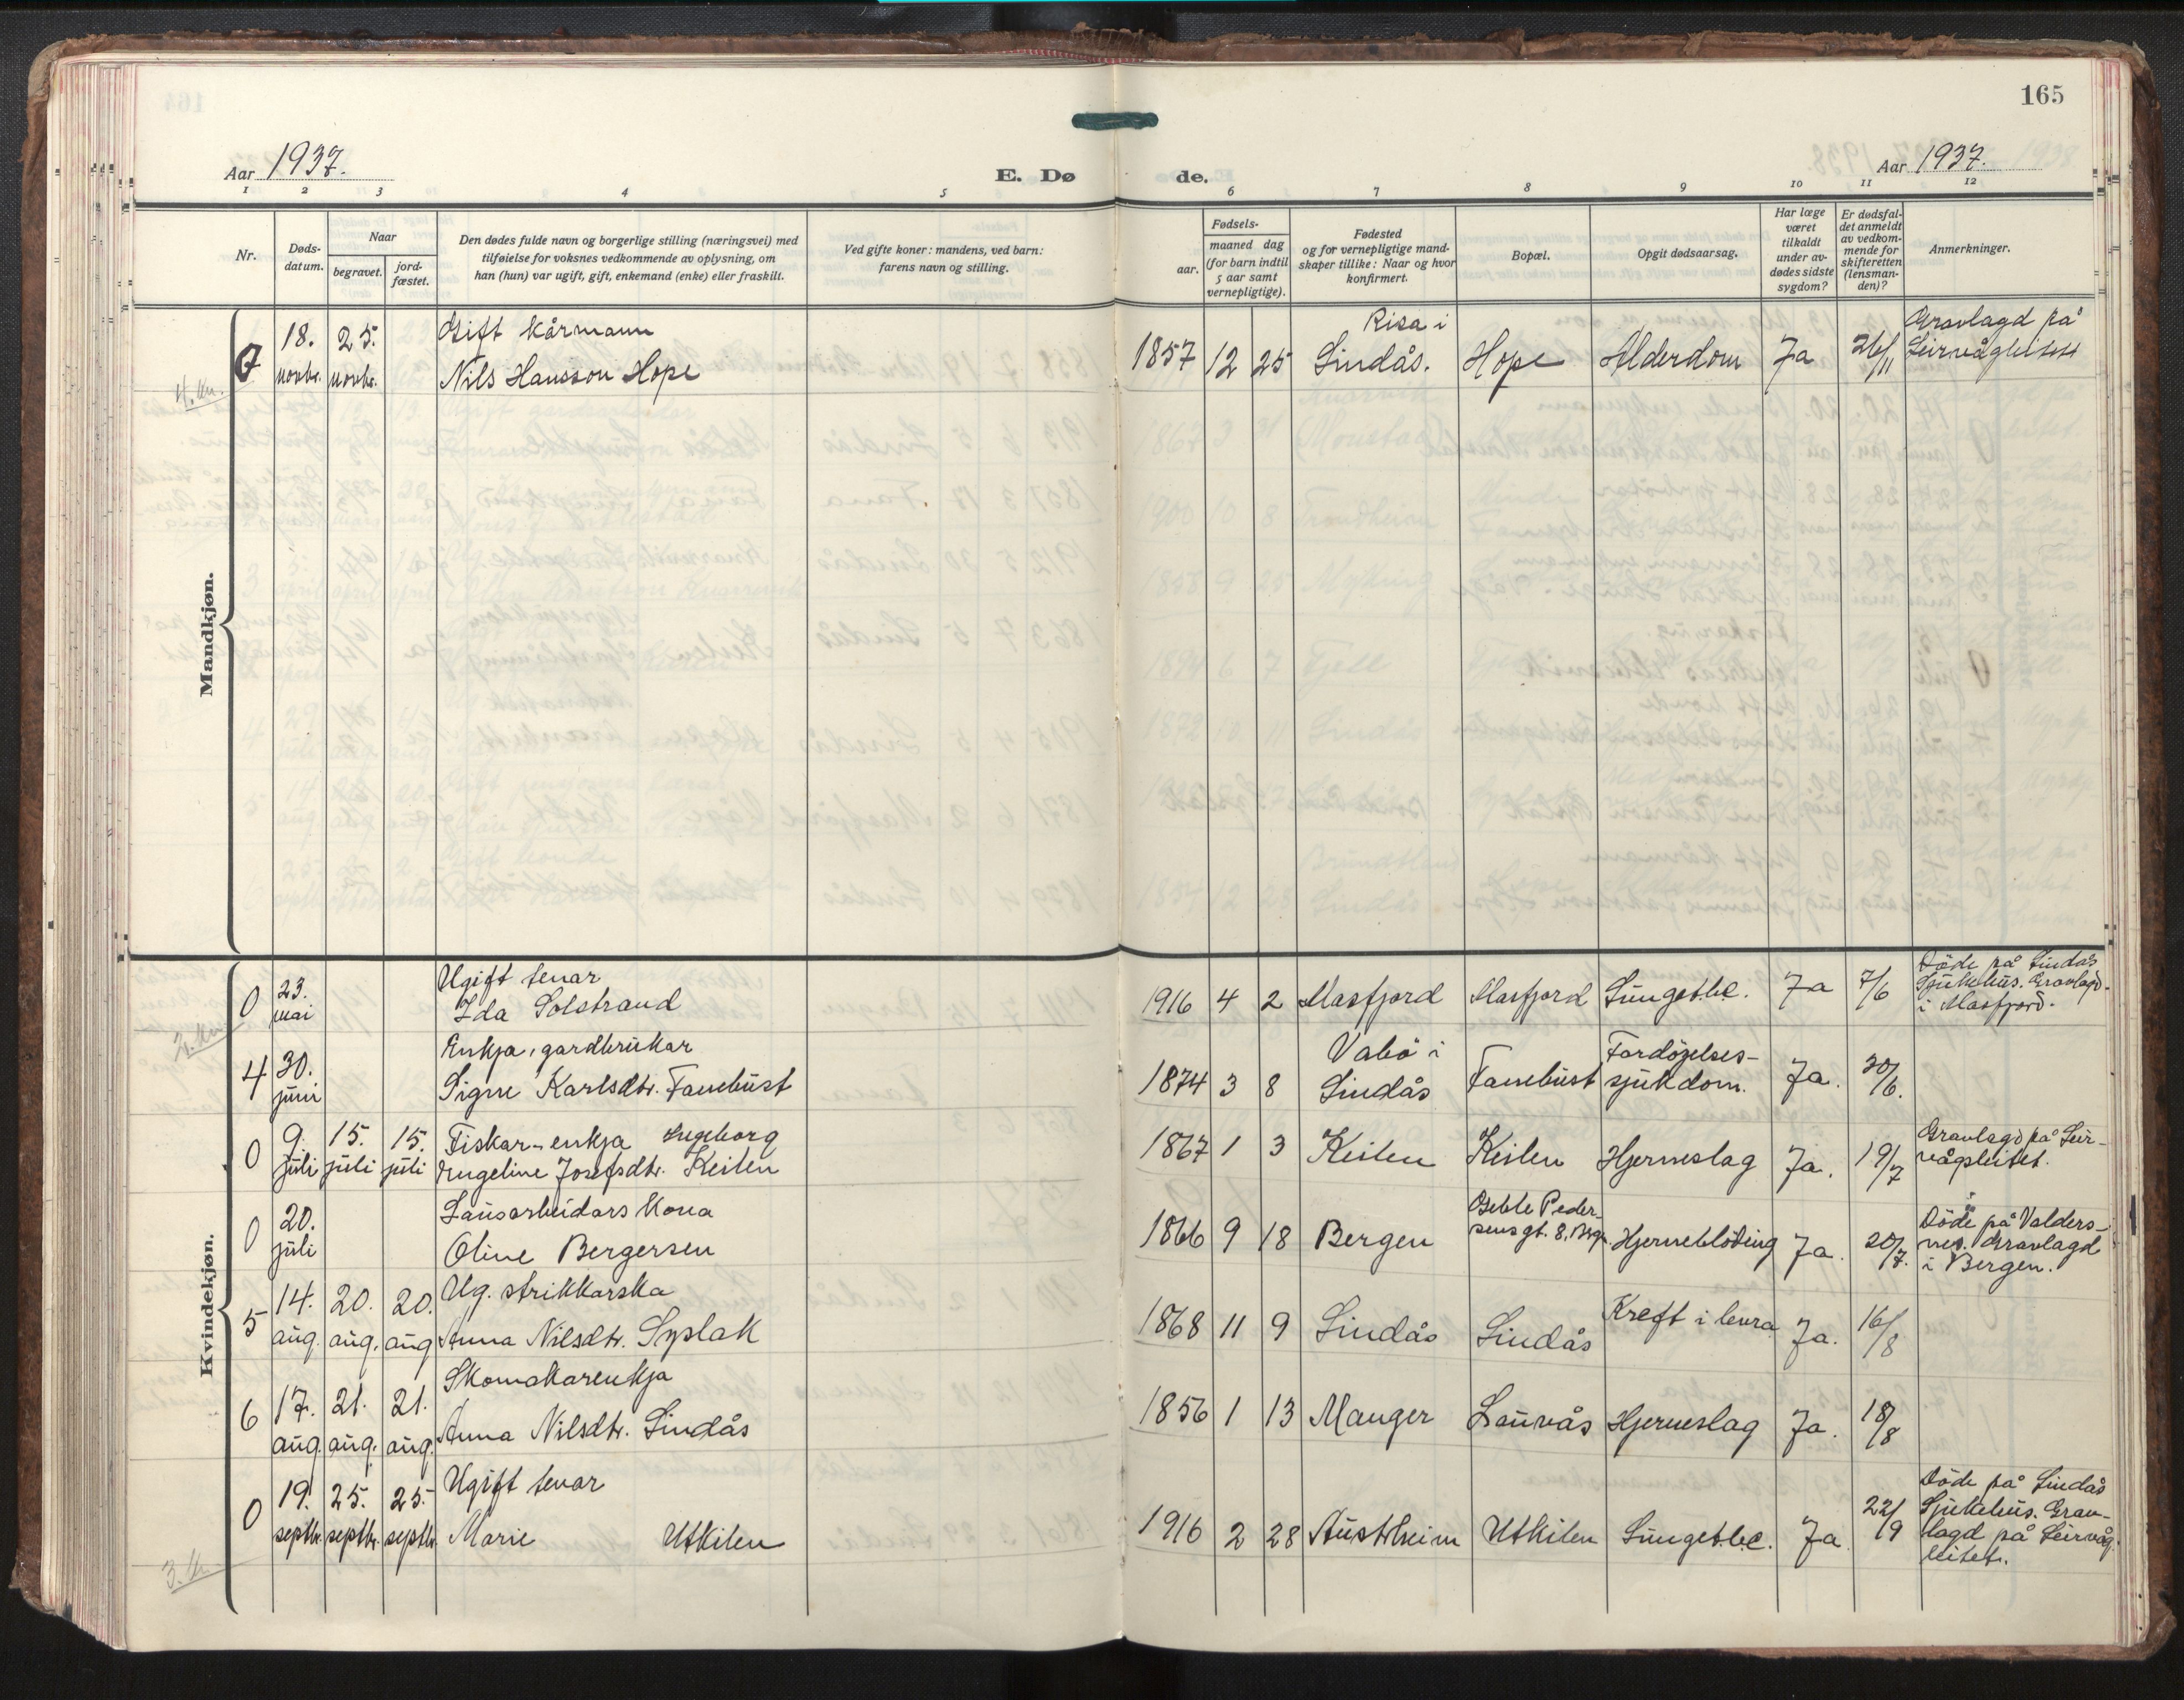 165
Aar 1937.
E. Dø
de.
Aar 1937.
1 2 3 4 5 6 7 8 9 10 11 12
Nr.
Døds-
datum.
Naar
begravet.
jord-
fæstet.
Den dødes fulde navn og borgerlige stilling (næringsvei) med
tilføielse for voksnes vedkommende av oplysning, om
han (hun) var ugift, gift, enkemand (enke) eller fraskilt.
Ved gifte koner: mandens, ved barn:
farens navn og stilling.
Fødsels-
aar.
maaned dag
(for barn indtil
5 aar samt
vernepligtige).
Fødested
og for vernepligtige mand-
skaper tillike: Naar og hvor
konfirmert.
Bopæl.
Opgit dødsaarsag.
Har læge
været
tilkaldt
under av-
dødes sidste
sygdom?
Er dødsfal-
det anmeldt
av vedkom-
mende for
skifteretten
(lensman-
den)?
Anmerkninger.
Mandkjøn.
4. kv.
7
18.
novbr.
25.
novbr.
Gift kårmann
Nils Hansson Hope
1857 12 25
Risa i
Lindås.
Hope
Alderdom
Ja
26/11
Gravlagd på
Leirvågleitet
Kvindekjøn.
0
23.
mai
Ugift tenar
Ida Solstrand
1916 4 2
Masfjord
Masfjord
Lungetbc.
Ja
7/6
Döde på Lindås
Sjukehus. Gravlagd
i Masfjord.
2. kv.
4
30.
juni
Enkja, gardbrukar
Signe Karlsdtr. Fanebust
1874 3 8
Vabö i
Lindås
Fanebust
Fordöyelses-
sjukdom.
Ja.
30/6.
0
9.
juli
15.
juli
15.
juli
Fiskar-enkja Ingeborg
Engeline Josefsdtr. Keilen
1867 1 3
Keilen
Keilen
Hjerneslag
Ja.
19/7
Gravlagd på Leir-
vågsleitet.
0
20.
juli
Lausarbeidars kona
Oline Bergersen
1866 9 18
Bergen
Geble Peder-
sensgt. 8, Brgn.
Hjerneblöding
Ja.
20/7.
Döde på Valders-
nes. Gravlagd
i Bergen.
5
14.
aug.
20.
aug.
20.
aug
Ug. strikkarska
Anna Nilsdtr. Syslak
1868 11 9
Lindås
Lindås
Kreft i levra
Ja.
16/8
6
17.
aug.
21.
aug.
21.
aug.
Skomakarenkja
Anna Nilsdtr. Lindås
1856 1 13
Manger
Lauvås
Hjerneslag
Ja.
18/8
0
19.
septbr.
25.
septbr.
25.
septbr.
Ugift tenar
Marie Utkilen
1916 2 28
Austrheim
Utkilen
Lungetbc.
Ja.
22/9
Döde på Lindås
Sjukehus. Grav-
lagd på Leirvåg-
leitet.
3. kv.